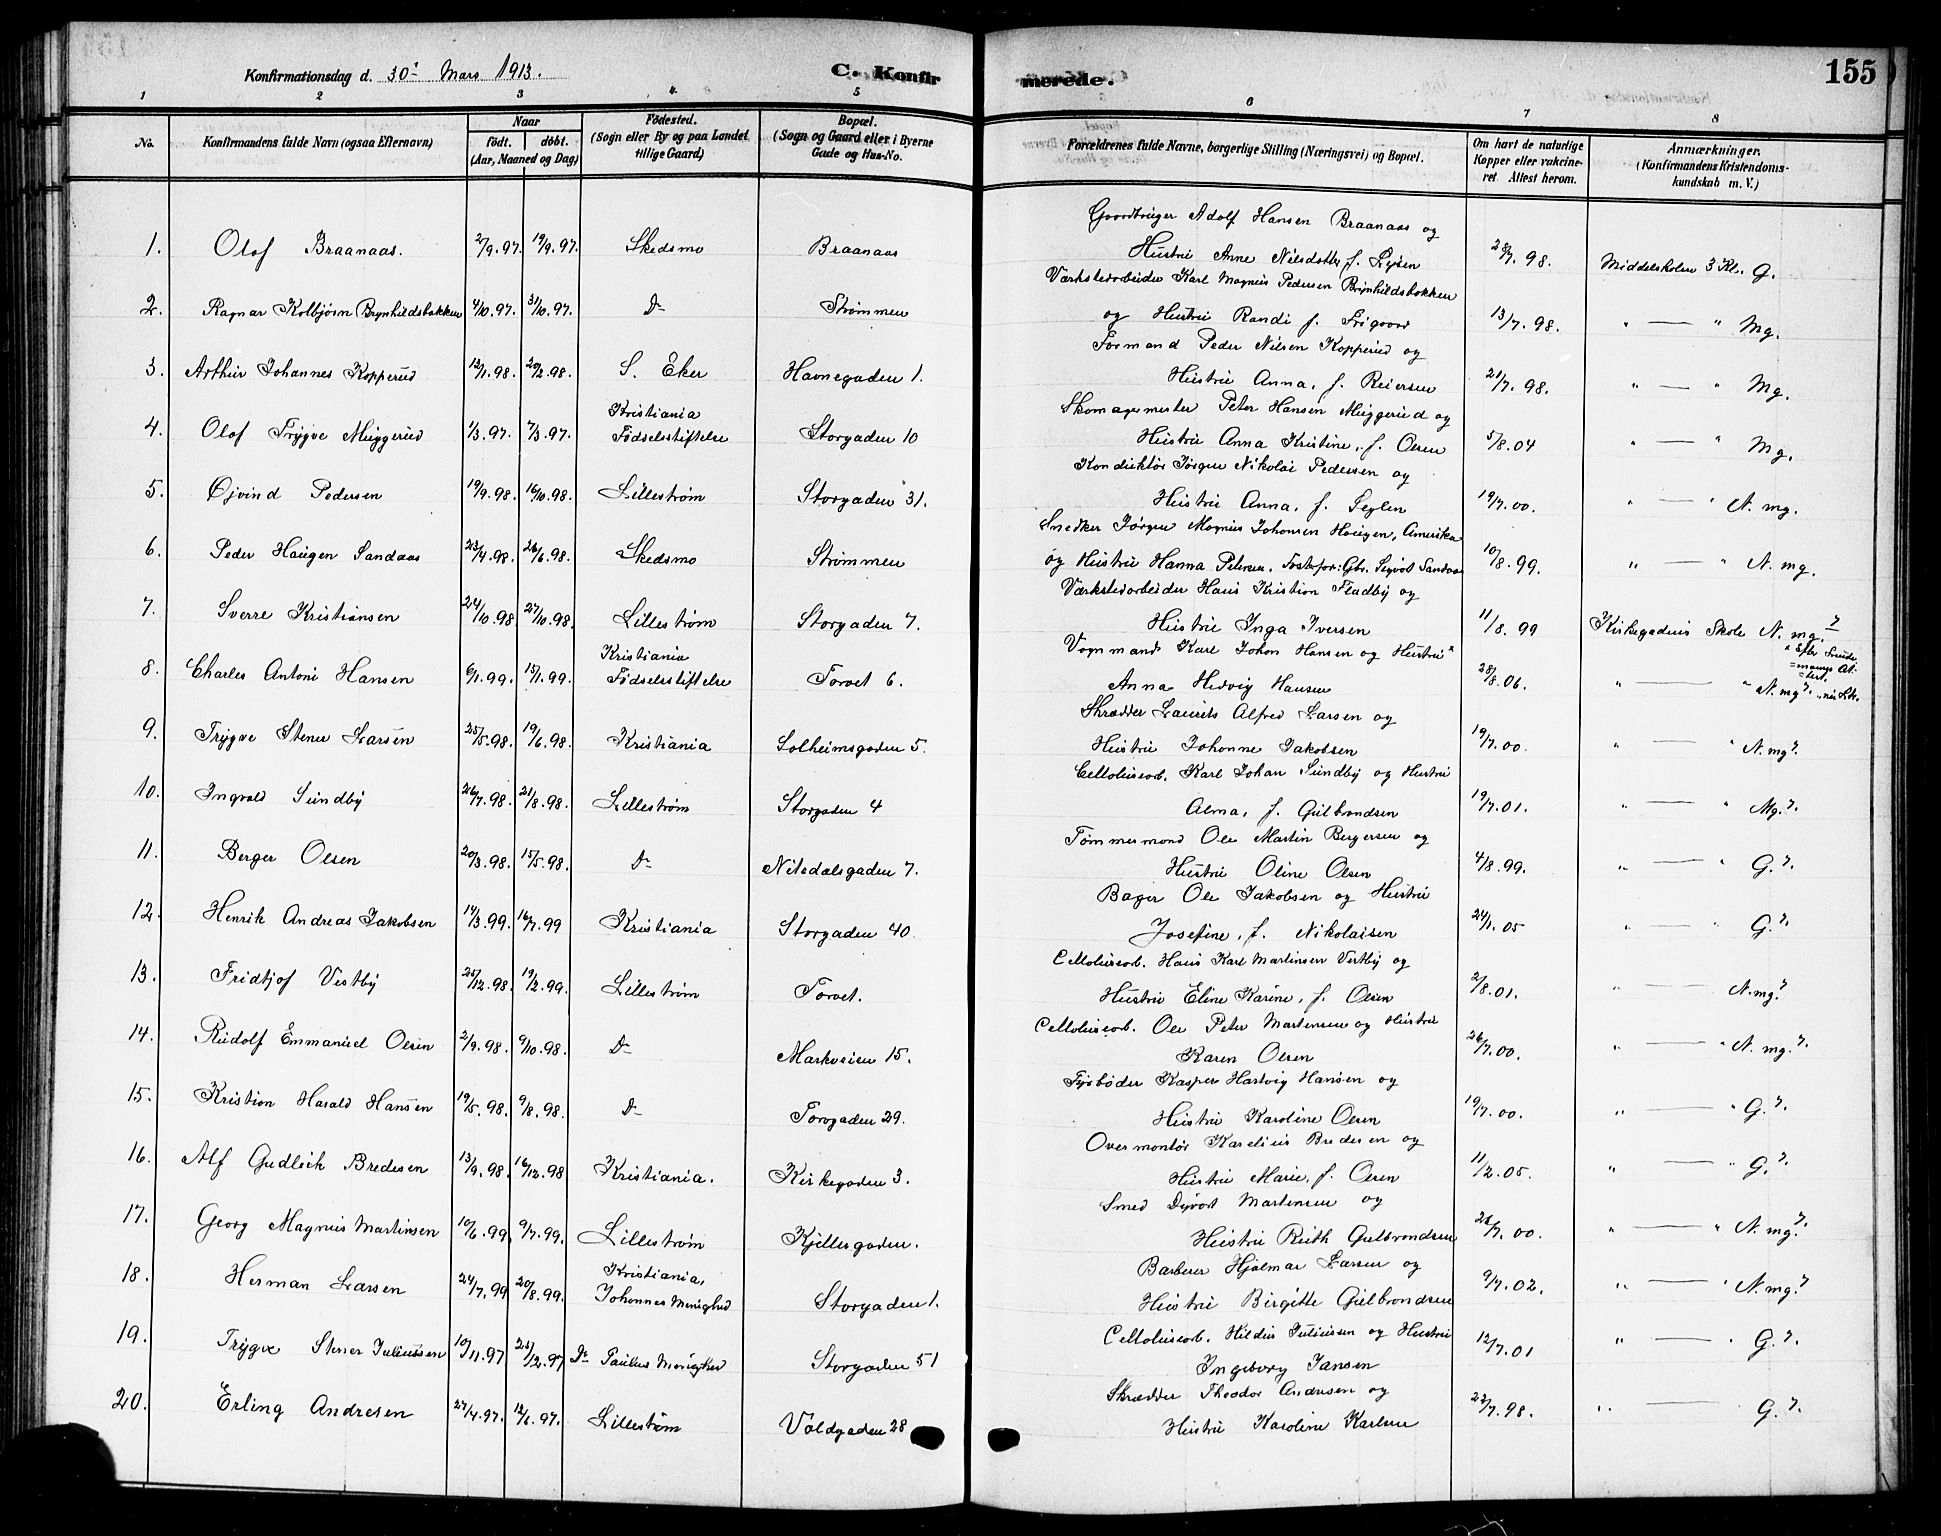 Konfirmationsdag d. 30' Mars 1913.
C. Konfirmerede.
155
1 2 3 4 5 6 7 8
No.
Konfirmandens fulde Navn (ogsaa Efternavn)
Naar
födt. döbt.
(Aar, Maaned og Dag)
Födested.
(Sogn eller By og paa Landet
tillige Gaard)
Bopæl.
(Sogn og Gaard eller i Byerne
Gade og Hus-No.
Forældrenes fulde Navne, borgerlige Stilling (Næringsvei) og Bopæl.
Om havt de naturlige
Kopper eller vakcine-
ret. Attest herom.
Anmærkninger.
(Konfirmandens Kristendoms-
kundskab m. V.)
Gaardbruger Adolf Hansen Braanaas og
1. Olaf Braanaas. 2/9.97. 19/9.97. Skedsmo Braanaas Hustru Anne Nilsdatter f. 28/7.98. Middelskolen 3 Kl. G.
Værkstedarbeider Karl Magnus Pedersen Brynhildsbakken
2. Ragnar Kolbjørn Brynhildsbakken 4/10.97. 31/10.97. Do Strømmen og Hustru Randi f. Frigaard 13/7.98. " — " Mg.
Formand Peder Nilsen Kopperud og
3. Arthur Johannes Kopperud 12/1.98. 20/2.98. S. Eker Havnegaden 1. Hustru Anna, f. Reiersen 21/7.98. " — " Mg.
Skomagermester Peter Hansen Muggerud og
4. Olaf Trygve Muggerud 1/3.97. 7/3.97. Kristiania Fødselsstiftelse Storgaden 10 Hustru Anna Kristine, f. Olsen 5/8.04 " — " Mg.
Konduktør Jørgen Nikolai Pedersen og
5. Øivind Pedersen 19/9.98. 16/10.98. Lillestrøm Storgaden 31. Hustru Anna, f. 19/7.00. " — " N. mg.
Snedker Jørgen Magnus Johansen Haugen, Amerika
6. Peder Haugen Sandaas 23/4.98. 26/6.98. Skedsmo Strømmen og Hustru Hanna Petersen. Fosterfor: Gbr. Sigvat Sandaas 10/8.99. " — " N. mg.
Værkstedarbeider Hans Kristian Fladby og
7. Sverre Kristiansen 24/10.98 27/10.98. Lillestrøm Storgaden 7. Hustru Inga Iversen 11/8.99 Kirkegadens Skole N. mg.
Vognmand Karl Johan Hansen og Hustru
8. Charles Antoni Hansen 6/1.99. 15/1.99. Kristiania Fødselsstiftelse Torvet 6. Anna Hedvig Hansen 28/8.06. " — " N. mg
Skrædder Laurits Alfred Larsen og
9. Trygve Stener Larsen 25/5.98. 19/6.98. Kristiania Solheimsgaden 5. Hustru Johanne Jakobsen 19/7.00. " — " N. mg
Cellulosearb. Karl Johan Sundby og Hustru
10. Ingvald Sundby 26/7.98. 21/8.98. Lillestrøm Storgaden 4 Alma, f. Gulbrandsen 19/7.01. " — " Mg.
Tømmermand Ole Martin Bergersen og
11. Berger Olsen 20/3.98. 15/5.98. Do Nitedalsgaden 7. Hustru Oline Olsen 4/8.99. " — " G.
Bager Ole Jakobsen og Hustru
12. Henrik Andreas Jakobsen 14/3.99. 16/7.99 Kristiania Storgaden 40. Josefine, f. Nikolaisen 24/1.05 " — " G.
Cellulosearb. Hans Karl Martinsen Vestby og
13. Fridtjof Vestby 25/12.98. 19/2.99. Lillestrøm Torvet. Hustru Eline Karine, f. Olsen 2/8.01. " — " N. mg.
Cellulosearb. Ole Peter Martensen og Hustru
14. Rudolf Emmanuel Olsen 2/9.98. 9/10.98. Do Markveien 15. Karen Olsen 26/7.00. " — " N. mg.
Fyrbøder Kasper Hartvig Hansen og
15. Kristian Harald Hansen 19/5.98. 9/8.98. Do Torvgaden 29. Hustru Karoline Olsen 19/7.00. " — " G.
Overmontør Karelius Bredesen og
16. Alf Gudleik Bredesen 13/9.98. 16/12.98 Kristiania. Kirkegaden 3. Hustru Marie, f. Olsen 11/2.05. " — " G.
Smed Dyvart Martensen og
17. Georg Magnus Martinsen 10/6.99. 9/7.99. Lillestrøm Kjellergaden. Hustru Ruth Gulbrandsen 26/7.00. " — " N. mg.
Barberer Hjalmar Larsen og
18. Herman Larsen 24/7.99 20/8.99. Kristiania, Johannes Menighed Storgaden 1. Hustru Birgitte Gulbrandsen 9/7.02. " — " N. mg.
Cellulosearb. Hildus Juliussen og Hustru
19. Trygve Stener Juliussen 10/11.97 25/12.97 Do Paulus Menighed Storgaden 51 Ingeborg Jansen 12/7.01 " — " G.
Skrædder Theodor Andresen og
20. Erling Andresen 27/4.97. 12/6.97. Lillestrøm Voldgaden 28 Hustru Karoline Karlsen 22/7.98. " — " G.